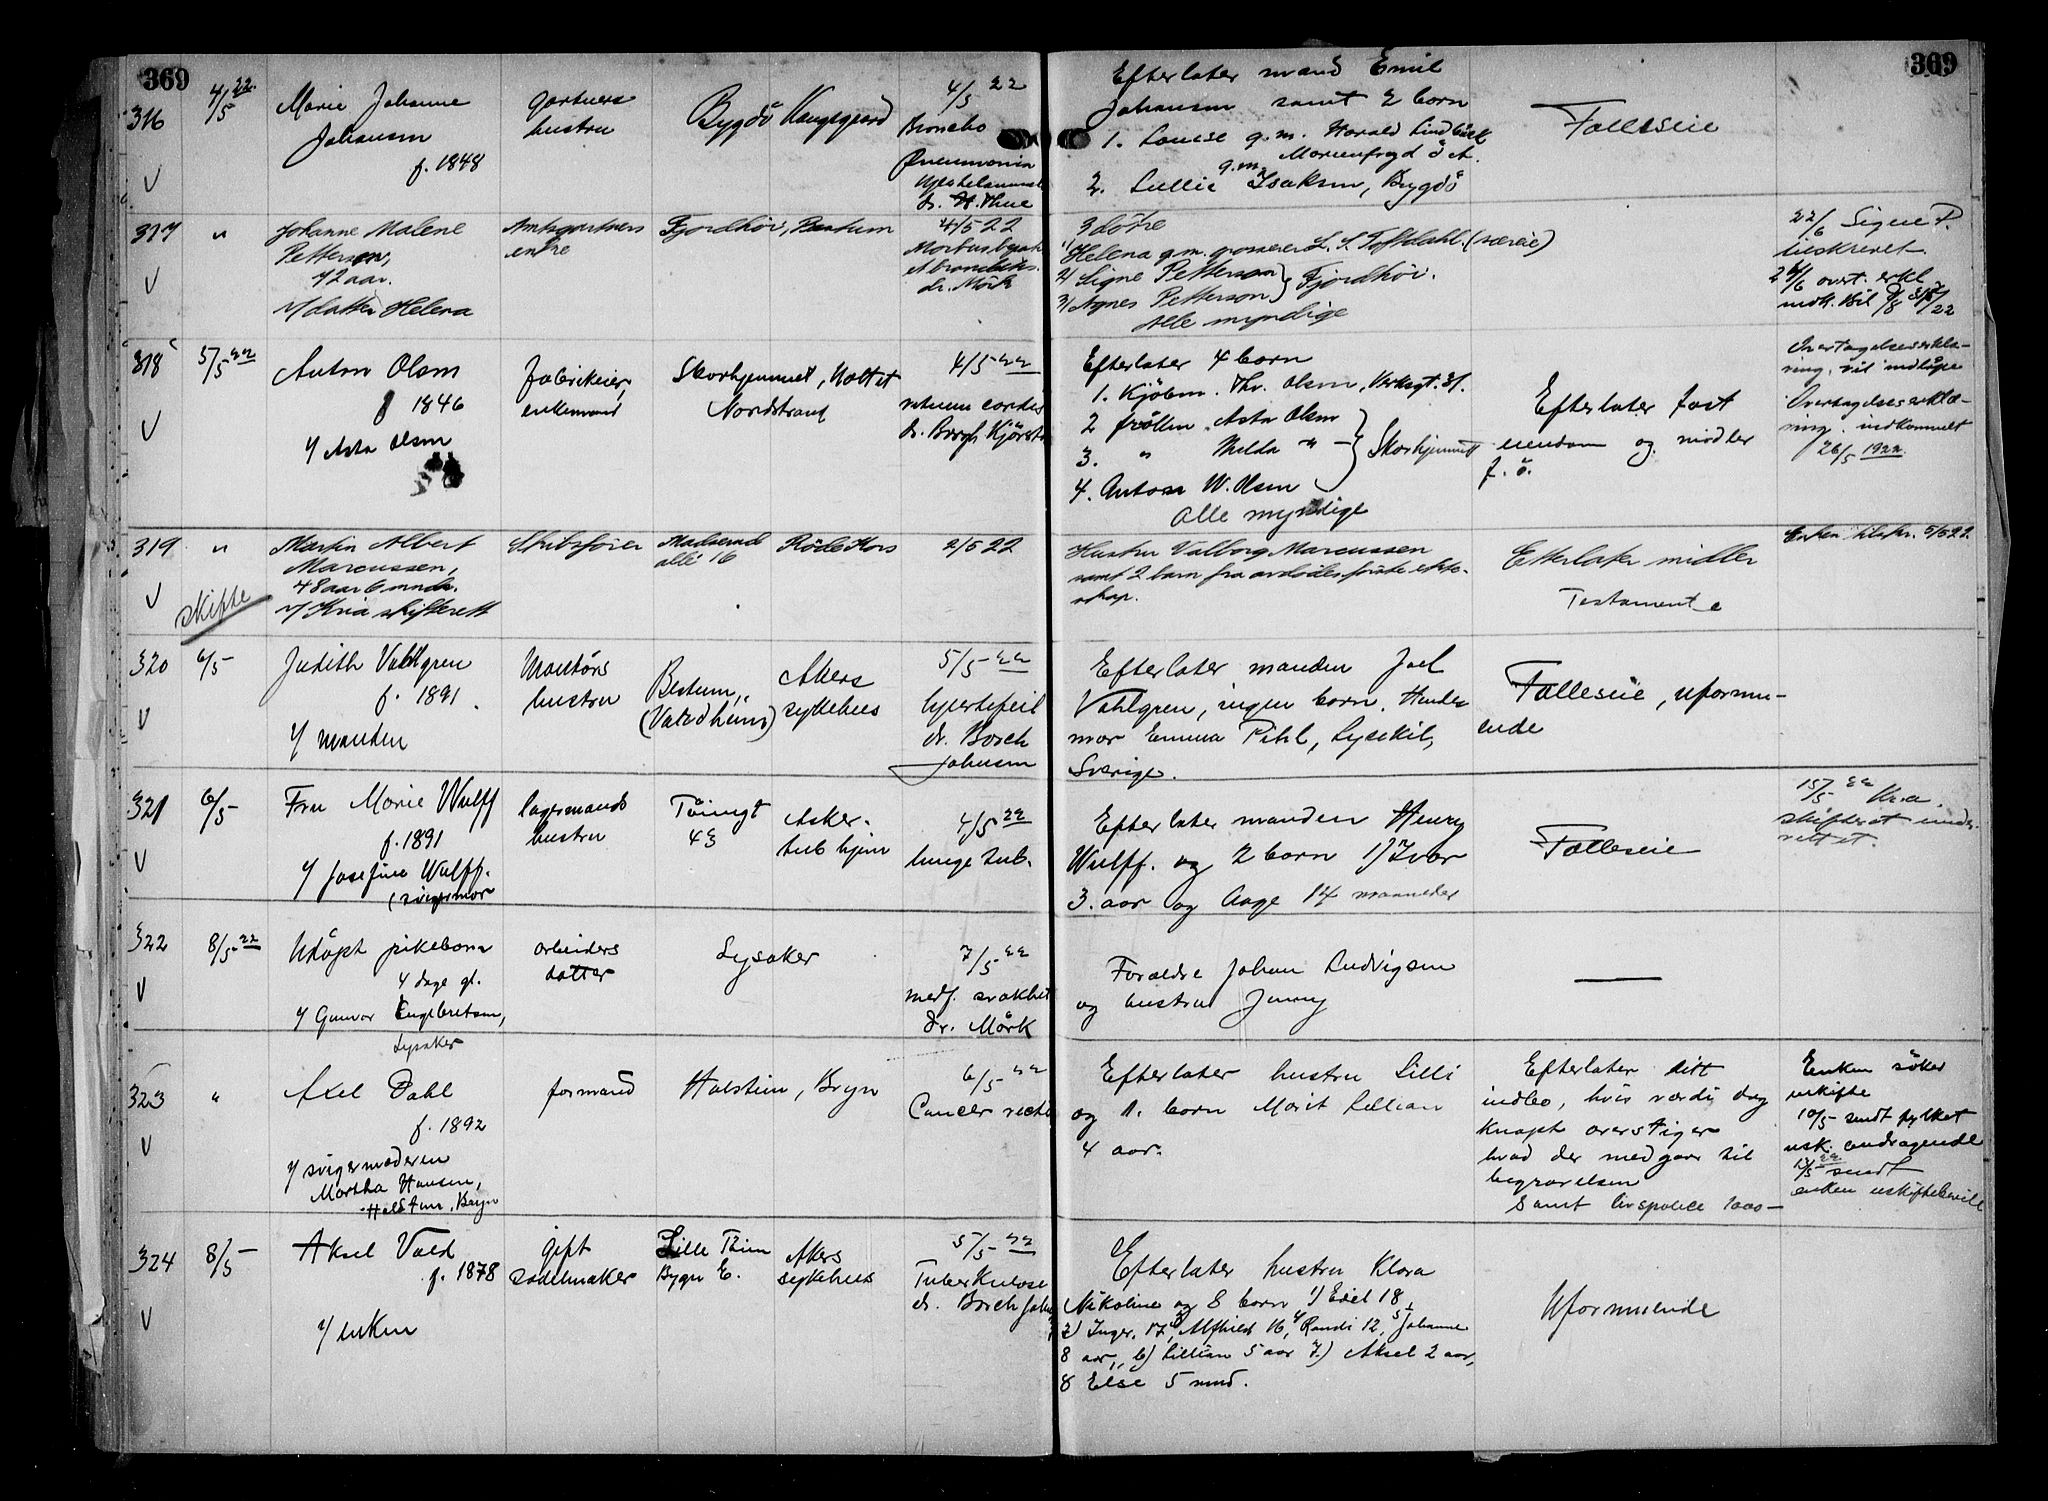 369
369
316
4/5 22
Marie Johanne
Johansen
f. 1848
gartners
hustru
Bygdö Kongsgaard
4/5 22
Broncho
Pneumonia
dr. H. Thue
Efterlater mand Emil
Johansen samt 2 born
1. Louise g.m. Harald Lindbäck
Marienfryd ö A.
g.m.
2. Lullie Isaksen, Bygdö
Fælleseie
317
"
Johanne Malene
Petterson,
72 aar.
v/ datter Helena
Amtsgartners
enke
Fjordhöi, Bestum
4/5 22
dr. Mörk
3 dötre
1/ Helena g.m. grosserer L. S. Toftdahl. (særeie)
2/ Signe Petterson } Fjordhöi.
3/ Agnes Petterson
Alle myndige
22/6 Signe P.
tilskrevet.
318
5/5 22
Anton Olsen
f 1846
v/ Asta Olsen
fabrikeier,
enkemand
Skovhjemmet, Holtet
Nordstrand
4/5 22
dr. Borgh. Kjörst
Efterlater 4 born
1. Kjöbm. Thv. Olsen, Verksgt. 31.
2 fröken Asta Olsen
3. " Hilda " } Skovhjemmet
4. Anton W. Olsen
Alle myndige
Efterlater fast
eiendom og midler
f. ö.
Overtagelseserklæ-
ring, vil indlöpe
Overtagelseserklæ-
ring indkommet
26/5 1922.
319
"
skifte
Martin Albert
Marcussen,
48 aar 6 mndr.
v/ Kria skifterett
Skibsförer
Madserud
allé 16
Röde Kors
2/5 22
Hustru Valborg Marcussen
samt 2 barn fra avdödes förste ekte-
skap.
Efterlater midler
Testamente
Enken tilskr. 5/5 22.
320
6/5
Judith Vahlgren
f. 1891.
v/ manden
Montörs
hustru
Bestum,
(Valdheim)
Akers
sykehus
5/5 22
hjertefeil
dr. Borch
Johnsen
Efterlater manden Joel
Vahlgren, ingen born. Hendes
mor Emma Pihl, Lysekil,
Sverige.
Fælleseie, uformu-
ende
321
6/5
Fru Marie Wulff
f. 1891
v/ Josefine Wulff.
(svigermor
lagermands
hustru
Töiengt
43
Asker
tub hjem
4/5 22
lungetub.
Efterlater manden Henry
Wulff. og 2 born 1) Ivar
3. aar og Aage 14 maaneder
Fælleseie
15/5 22 Kra.
skifteret under-
rettet.
322
8/5 22
Udöpt pikebarn
4 dage gl.
v/ Gunvor Engebretsen,
Lysaker
arbeiders
datter
Lysaker
7/5 22
medf. svakhet
dr. Mörk
Foraldre Johan Ludvigsen
og hustru Jenny
—
323
"
Axel Dahl
f. 1892
v/ svigermoderen
Martha Hansen,
Holstein, Bryn
formand
Holstein, Bryn
6/5 22
Cancer recti
Efterlater hustru Lilli
og 1. born Marit Lillian
4 aar.
Efterlater sitt
indbo, hvis værdi dog
knapt overstiger
hvad der medgaar til
begravelsen
Samt livspolice 1000—
Enken söker
uskifte
10/5 sendt fylket
usk. andragende
17/5 22 sendt
enken uskiftebevill
324
8/5
Aksel Vold
f. 1878
v/ enken
gift
sadelmaker
Lille Thien
Bygn E.
Akers
sykehus
5/5 22
Tuberkulose
dr. Borch Johns
Efterlater hustru Klara
Nikoline og 8 born 1) Edel 18
2) Inger. 17, 3 Alfhild 16, 4 Randi 12, 5 Johanne
8 aar, 6) Lillian 5 aar 7.) Aksel 2 aar,
8 Else 5 mnd.
Uformuende